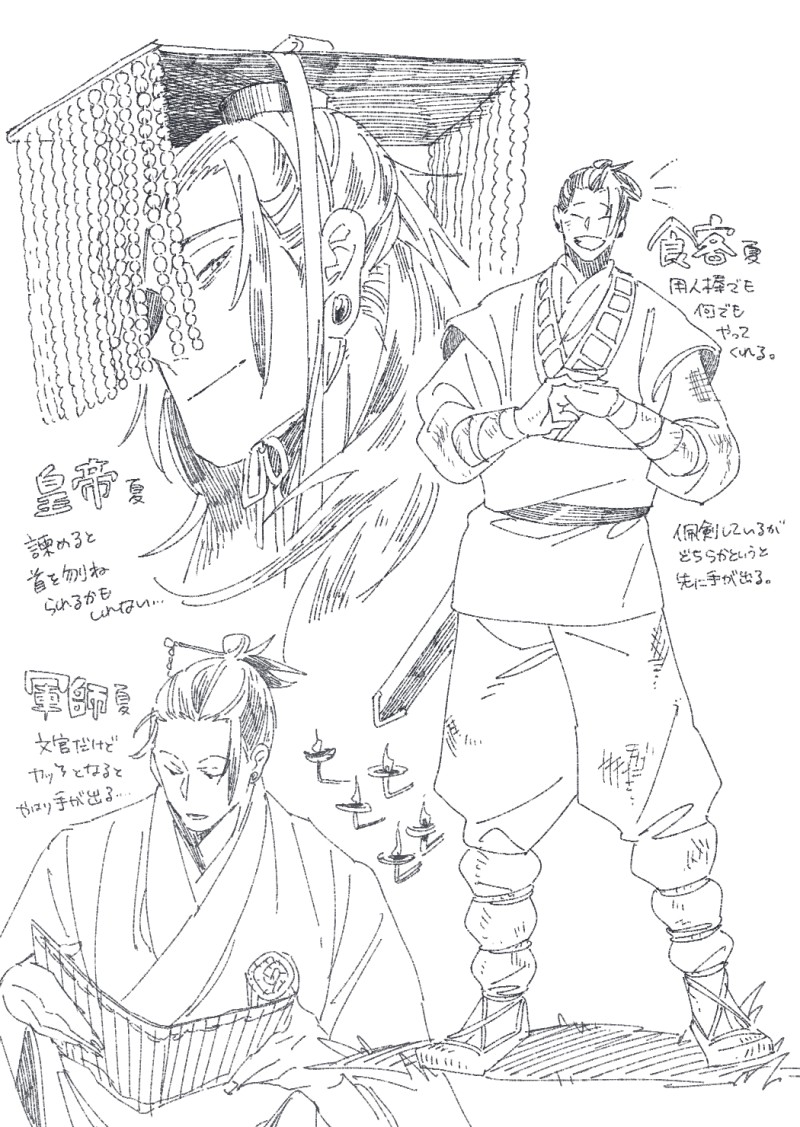 食客 夏
用人棒でも
何でも
やって
くれる。
皇帝 夏
諫めると
首を刎ね
られるかも
しれない…
佩剣しているが
どちらかというと
先に手が出る。
軍師 夏
文官だけど
カッとなると
やはり手が出る…